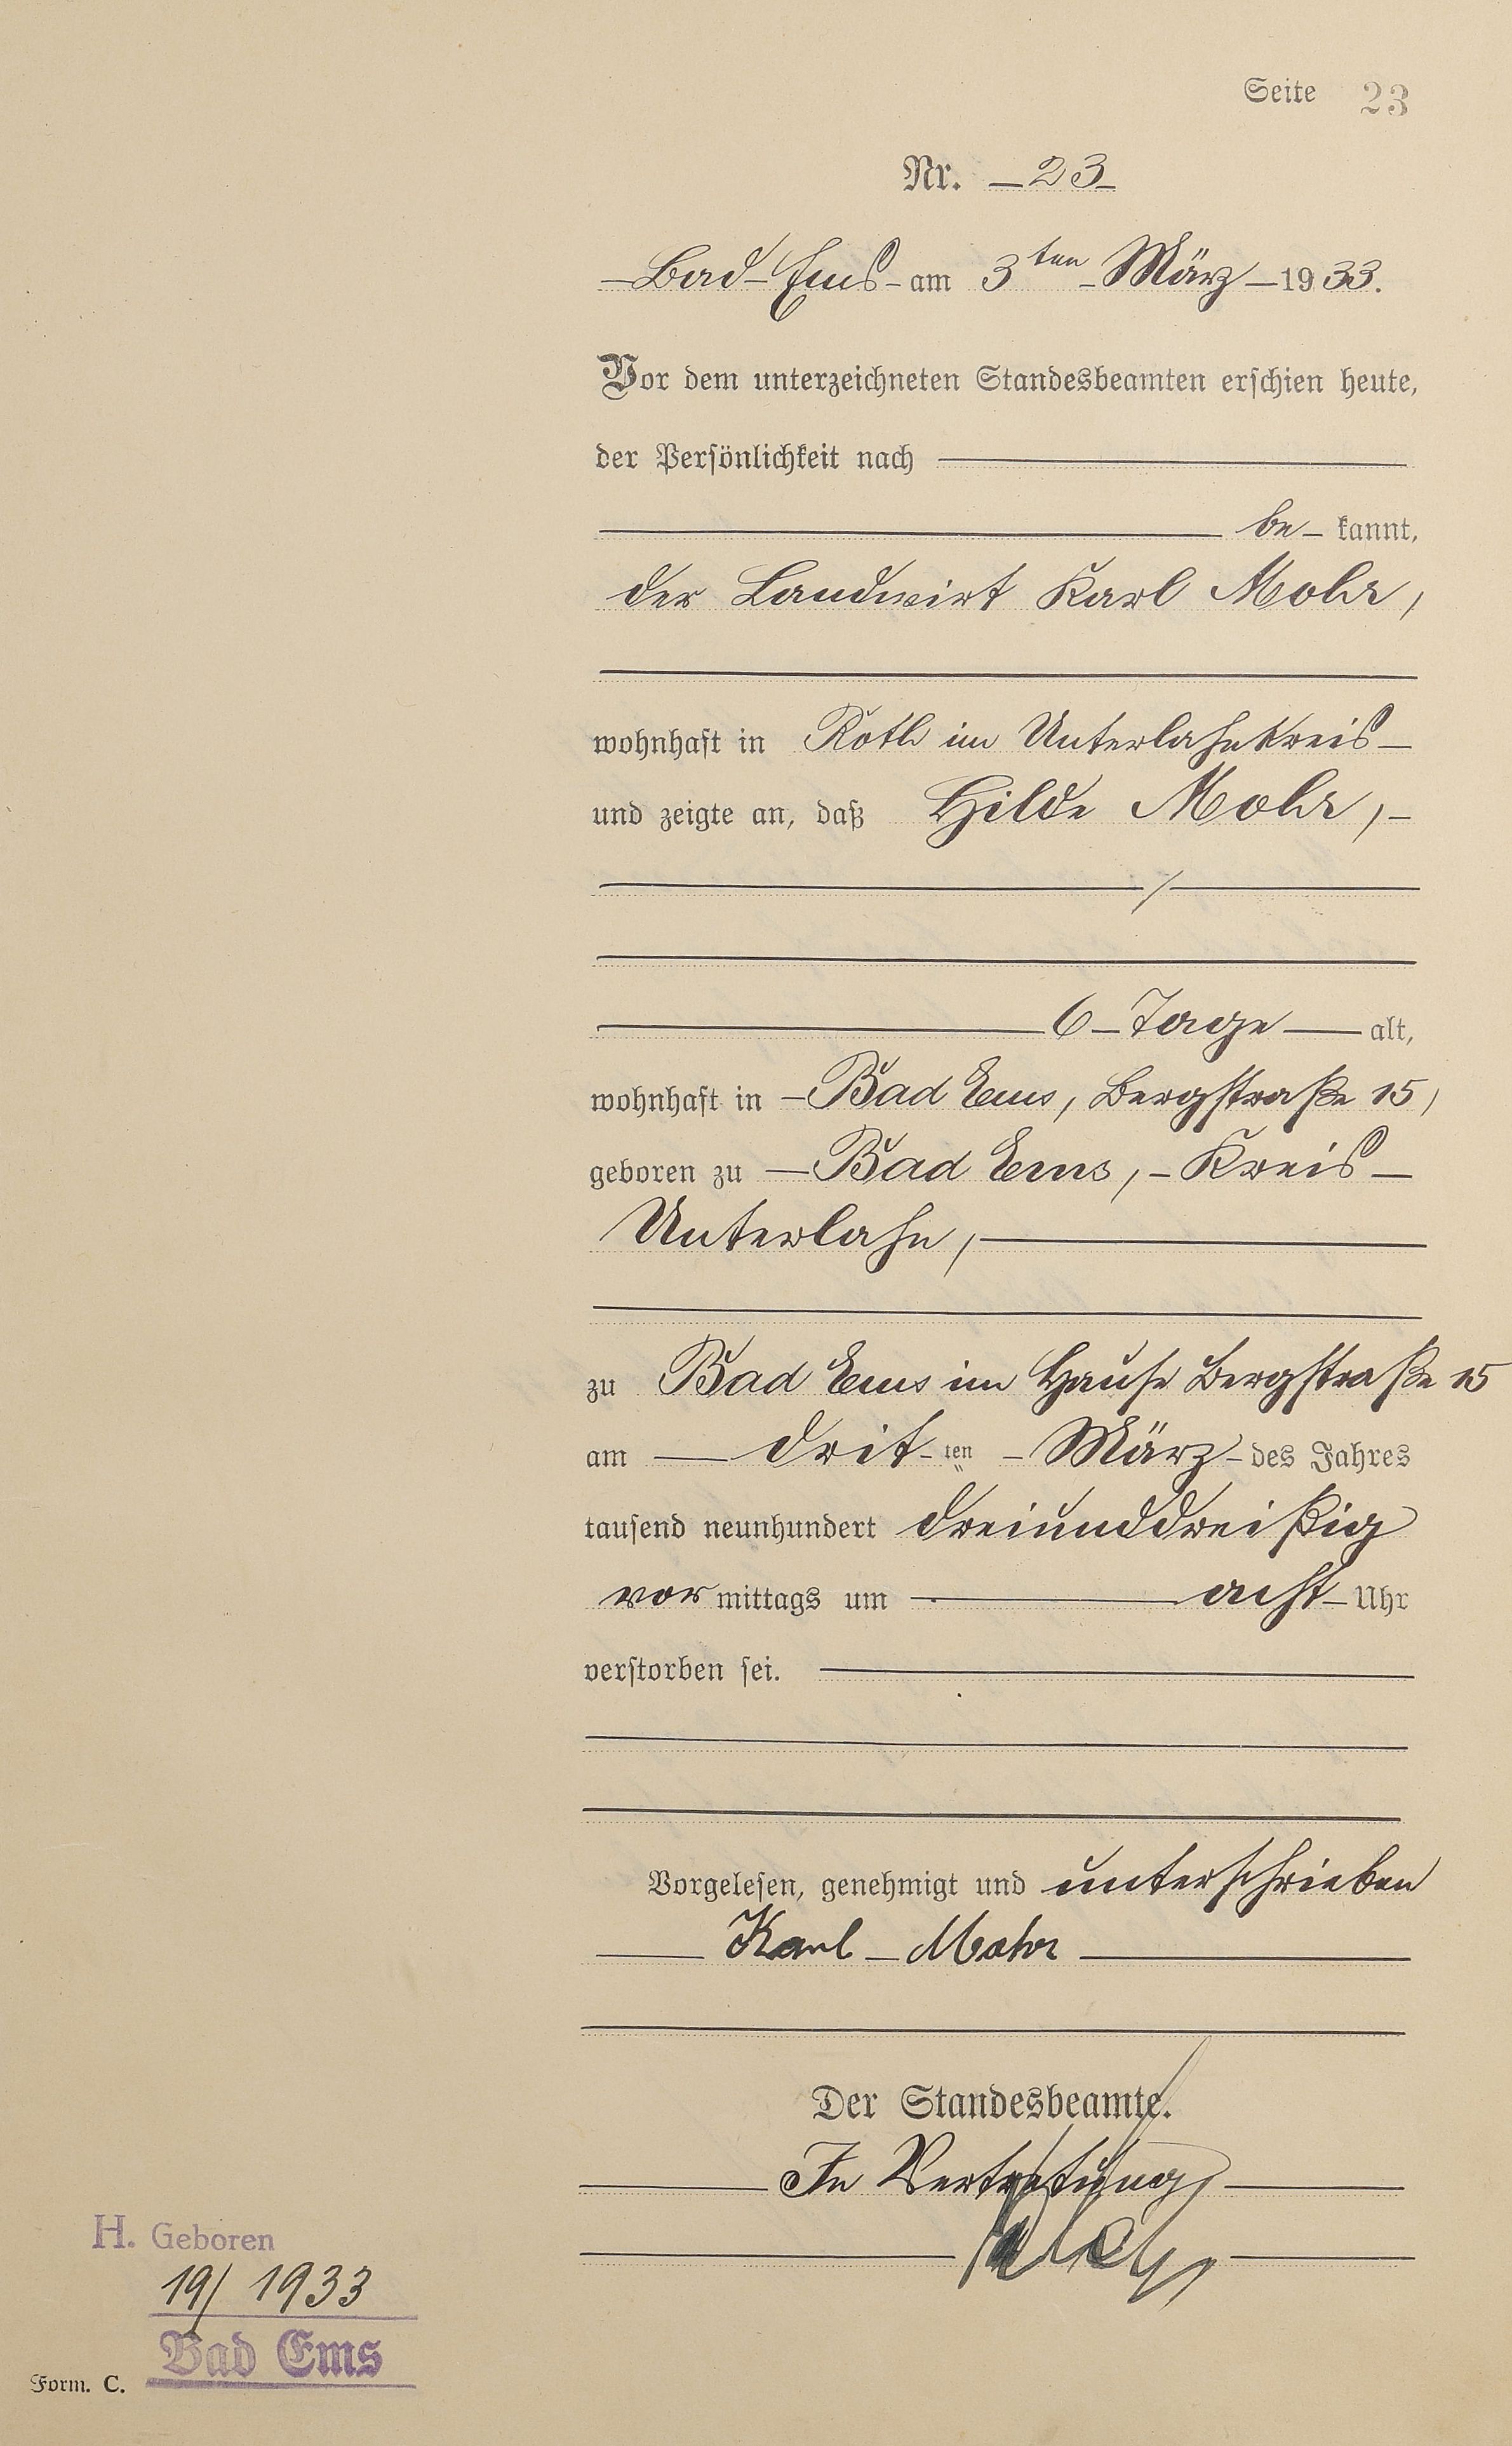 Seite 23
Nr. 23
Bad Ems am 3ten März 1933.
Vor dem unterzeichneten Standesbeamten erschien heute,
der Persönlichkeit nach
be kannt,
der Landwirt Karl Mohr,
wohnhaft in Roth im Unterlahnkreis
und zeigte an, daß Hilde Mohr,
6 Tage alt,
wohnhaft in Bad Ems, Bergstraße 15,
geboren zu Bad Ems, Kreis
Unterlahn,
zu Bad Ems im Hause Bergstraße 15
am drit ten März des Jahres
tausend neunhundert dreiunddreißig
vor mittags um acht Uhr
verstorben sei.
Vorgelesen, genehmigt und unterschrieben
Karl Mohr
Der Standesbeamte.
In Vertretung
H. Geboren
19/ 1933
Bad Ems
Form. C.